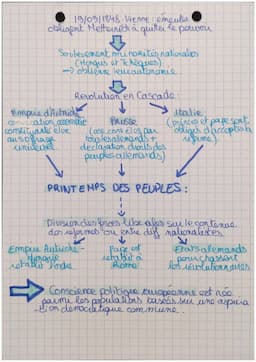 Vienne: émeutes
obligent Metternich à quitter le pouvoir
Soulèvement minorités nationales
(Hongrois et Tchèques)
→ obtienne leur autonomie
Révolution en Cascade
Empire d'Autriche
assemblée
constituante élue
au suffrage
universel
Prusse
(ass. con élus par
tous les allemands +
déclaration droits des
peuples allemands)
Italie
(princes et pape sont
obligés d'accepter la
réforme)
PRINTEMPS DES PEUPLES:
Division des forces libérales sur le contenue
des réformes ou entre dif nationalistes.
Empire Autriche-
Hongrie
rétablie l'ordre
Pape est
rétablit à
Rome
États allemands
pourchassent
les révolutionnaires
Conscience politique européenne est née
parmi les populations basées sur une
d'ion démocratique commune.